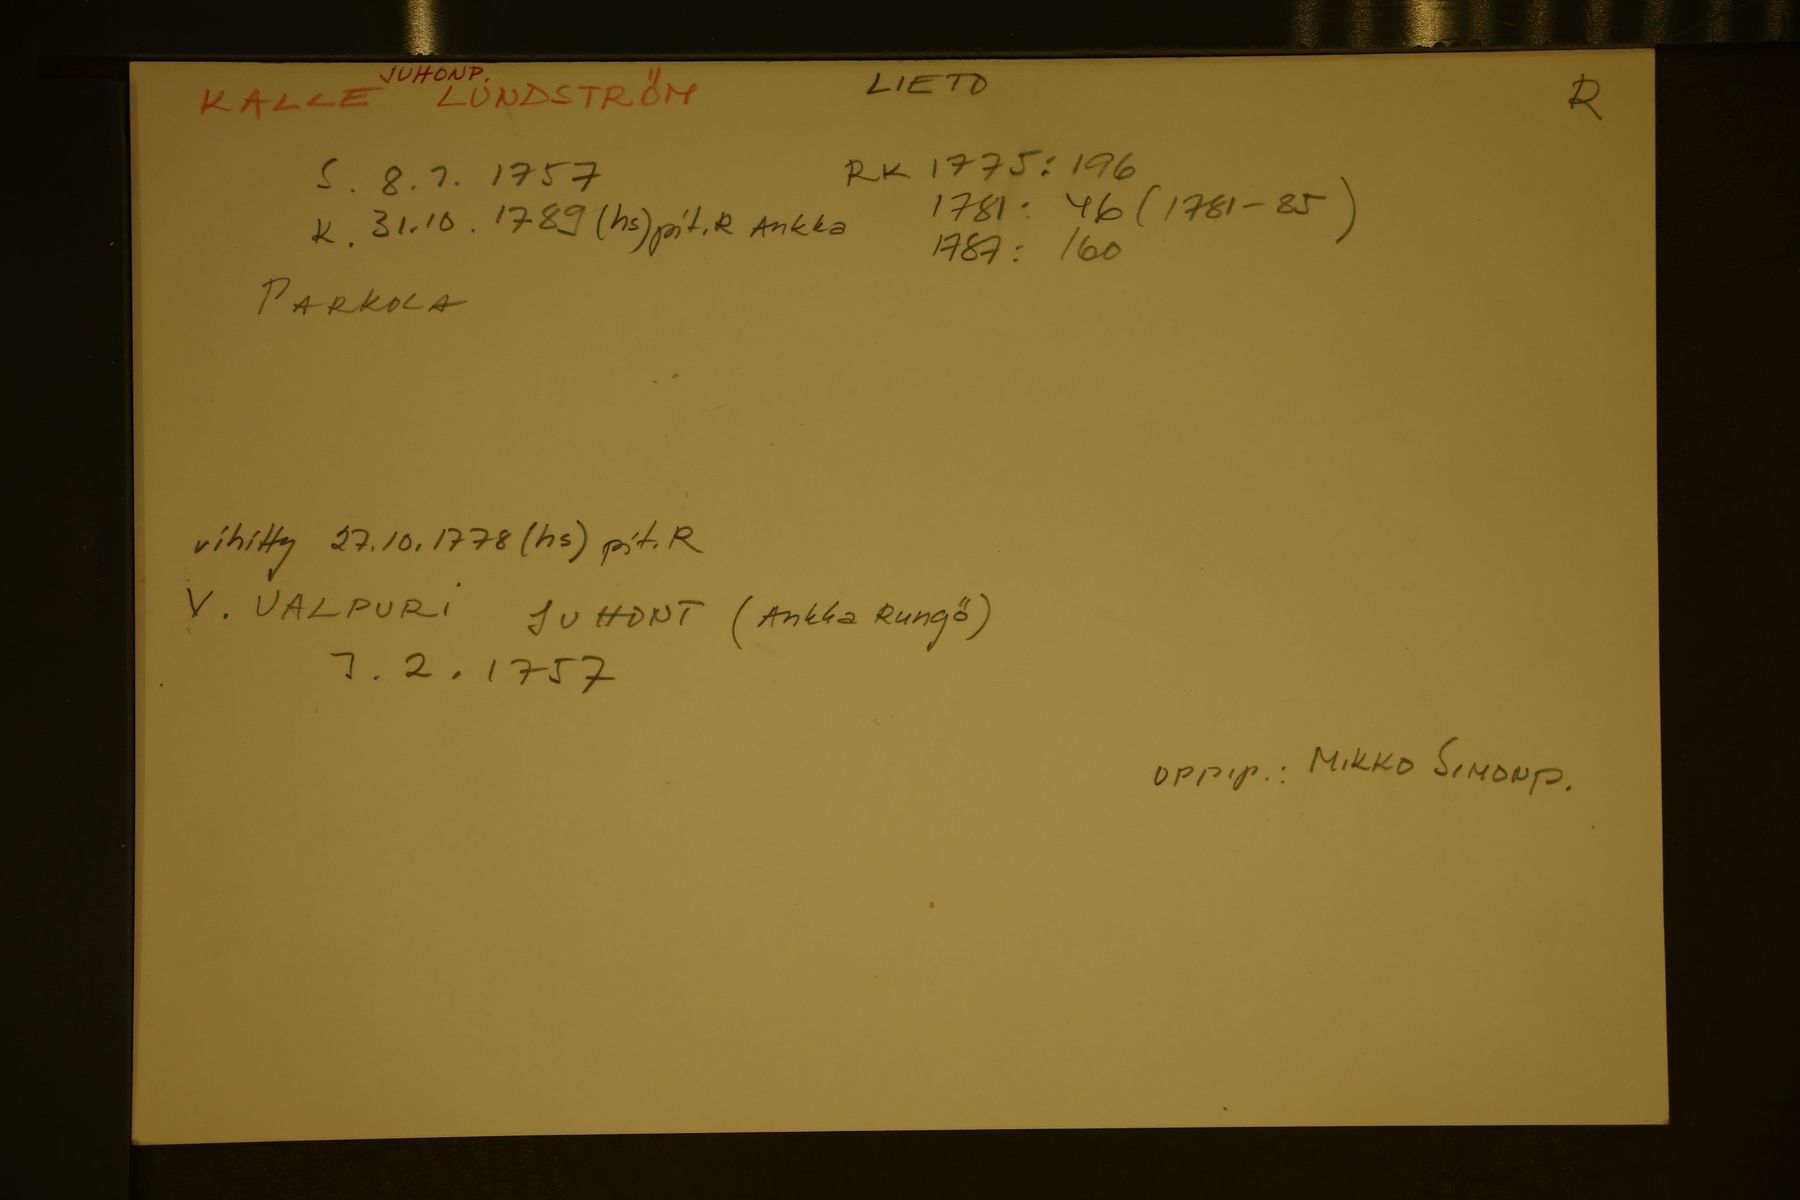 KALLE JUHONP. LUNDSTRÖM LIETO R
S. 8.7. 1757 RK 1775: 196
K. 31.10. 1789 (hs) pit. R Ankka 1781: 46 (1781-85)
1787: 160
PARKOLA
vihitty 27.10.1778 (hs) pit. R
V. VALPURI JUHONT (Ankka Rungö)
7. 2. 1757
OPPIP.: MIKKO SIMONP.